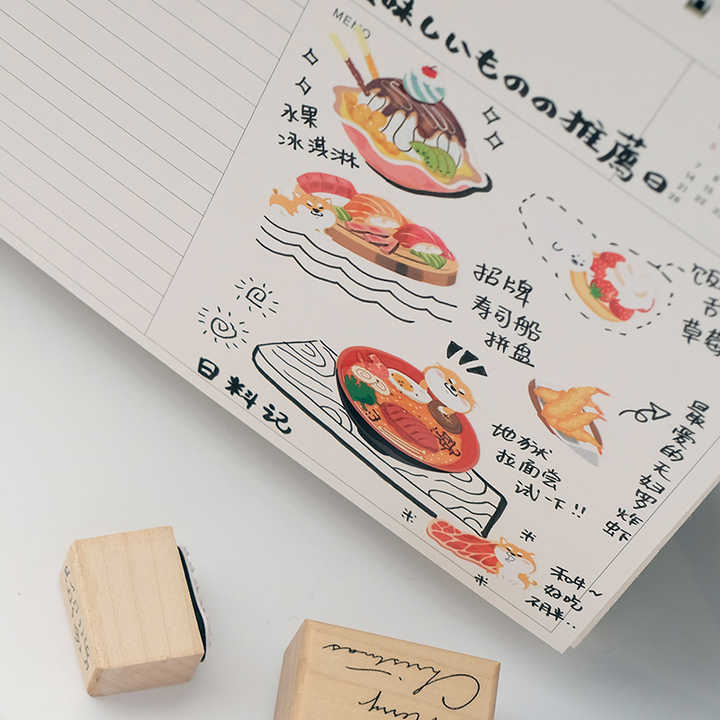 MEMO
味しいものの推薦日
水果
冰淇淋
招牌
寿司船
拼盘
饭
草莓
日料记
地狱
拉面尝
试一下!!
最爱的天妇罗炸虾
和牛~
好吃
不胖..
7
14
21
28
Merry
Christmas